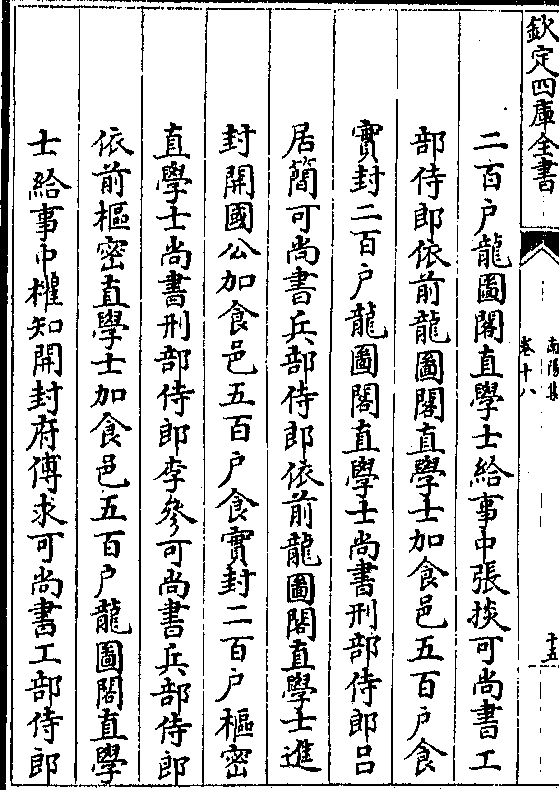 欽定四庫全書
南陽集
卷十八
十五
二百户龍圖閣直學士給事中張掞可尚書工
部侍郎依前龍圖閣直學士加食邑五百户食
實封二百户龍圖閣直學士尚書刑部侍郎吕
居簡可尚書兵部侍郎依前龍圖閣直學士進
封開國公加食邑五百户食實封二百户樞密
直學士尚書刑部侍郎李參可尚書兵部侍郎
依前樞密直學士加食邑五百户龍圖閣直學
士給事中權知開封府傅求可尚書工部侍郎